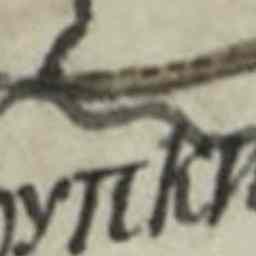 рупки